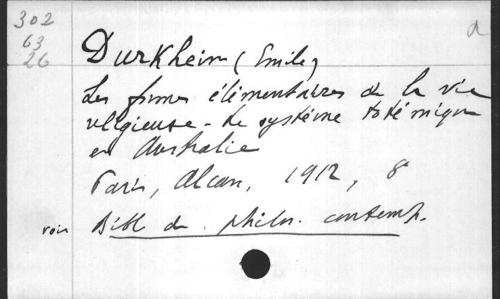 302
63
26
a
Durkheim (Emile)
Les formes élémentaires de la vie
religieuse - Le système totémique
en Australie
Paris, Alcan, 1912, 8°
voir Bibl. de . philos. contemp.